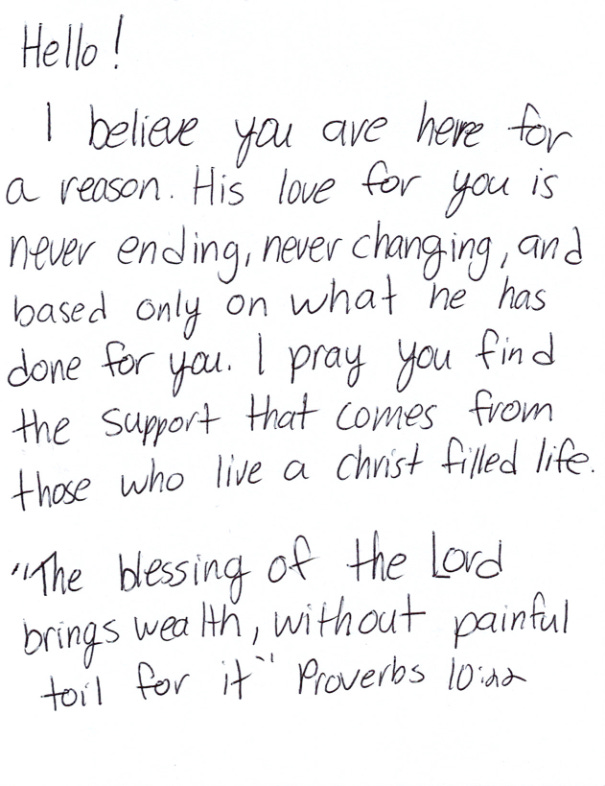 Hello!
I believe you are here for
a reason. His love for you is
never ending, never changing, and
based only on what he has
done for you. I pray you find
the support that comes from
those who live a christ filled life.
"The blessing of the Lord
brings wealth, without painful
toil for it" Proverbs 10:22